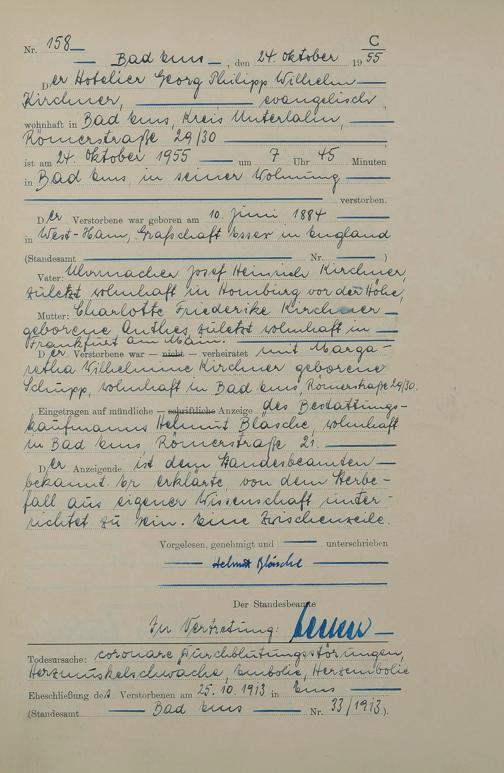 Nr. 158
C
Bad Ems, den 24. Oktober 1955
Der Hotelier Georg Philipp Wilhelm
Kirchner, evangelisch,
wohnhaft in Bad Ems, Kreis Unterlahn,
Römerstraße 29/30,
ist am 24. Oktober 1955 um 7 Uhr 45 Minuten
in Bad Ems, in seiner Wohnung
verstorben.
Der Verstorbene war geboren am 10. Juni 1884
in West-Ham, Grafschaft Essex in England
(Standesamt Nr. )
Vater: Uhrmacher Josef Heinrich Kirchner,
zuletzt wohnhaft in Homburg vor der Höhe,
Mutter: Charlotte Friederike Kirchner
geborene Anthes, zuletzt wohnhaft in
Frankfurt am Main.
Der Verstorbene war — nicht — verheiratet mit Marga-
retha Wilhelmine Kirchner geborene
Schupp, wohnhaft in Bad Ems, Römerstraße 29/30.
Eingetragen auf mündliche — schriftliche Anzeige des Bestattungs-
kaufmanns Helmut Bläsche, wohnhaft
in Bad Ems Römerstraße 21.
Der Anzeigende ist dem Standesbeamten
bekannt. Er erklärte, von dem Sterbe-
fall aus eigener Wissenschaft unter-
richtet zu sein. Eine Zwischenzeile.
Vorgelesen, genehmigt und unterschrieben
Helmut Bläsche
Der Standesbeamte
In Vertretung:
Todesursache: coronare Durchblutungsstörungen,
Herzmuskelschwäche, Embolie, Herzembolie
Eheschließung des Verstorbenen am 25.10.1913 in Ems
(Standesamt Bad Ems Nr. 33/1913).